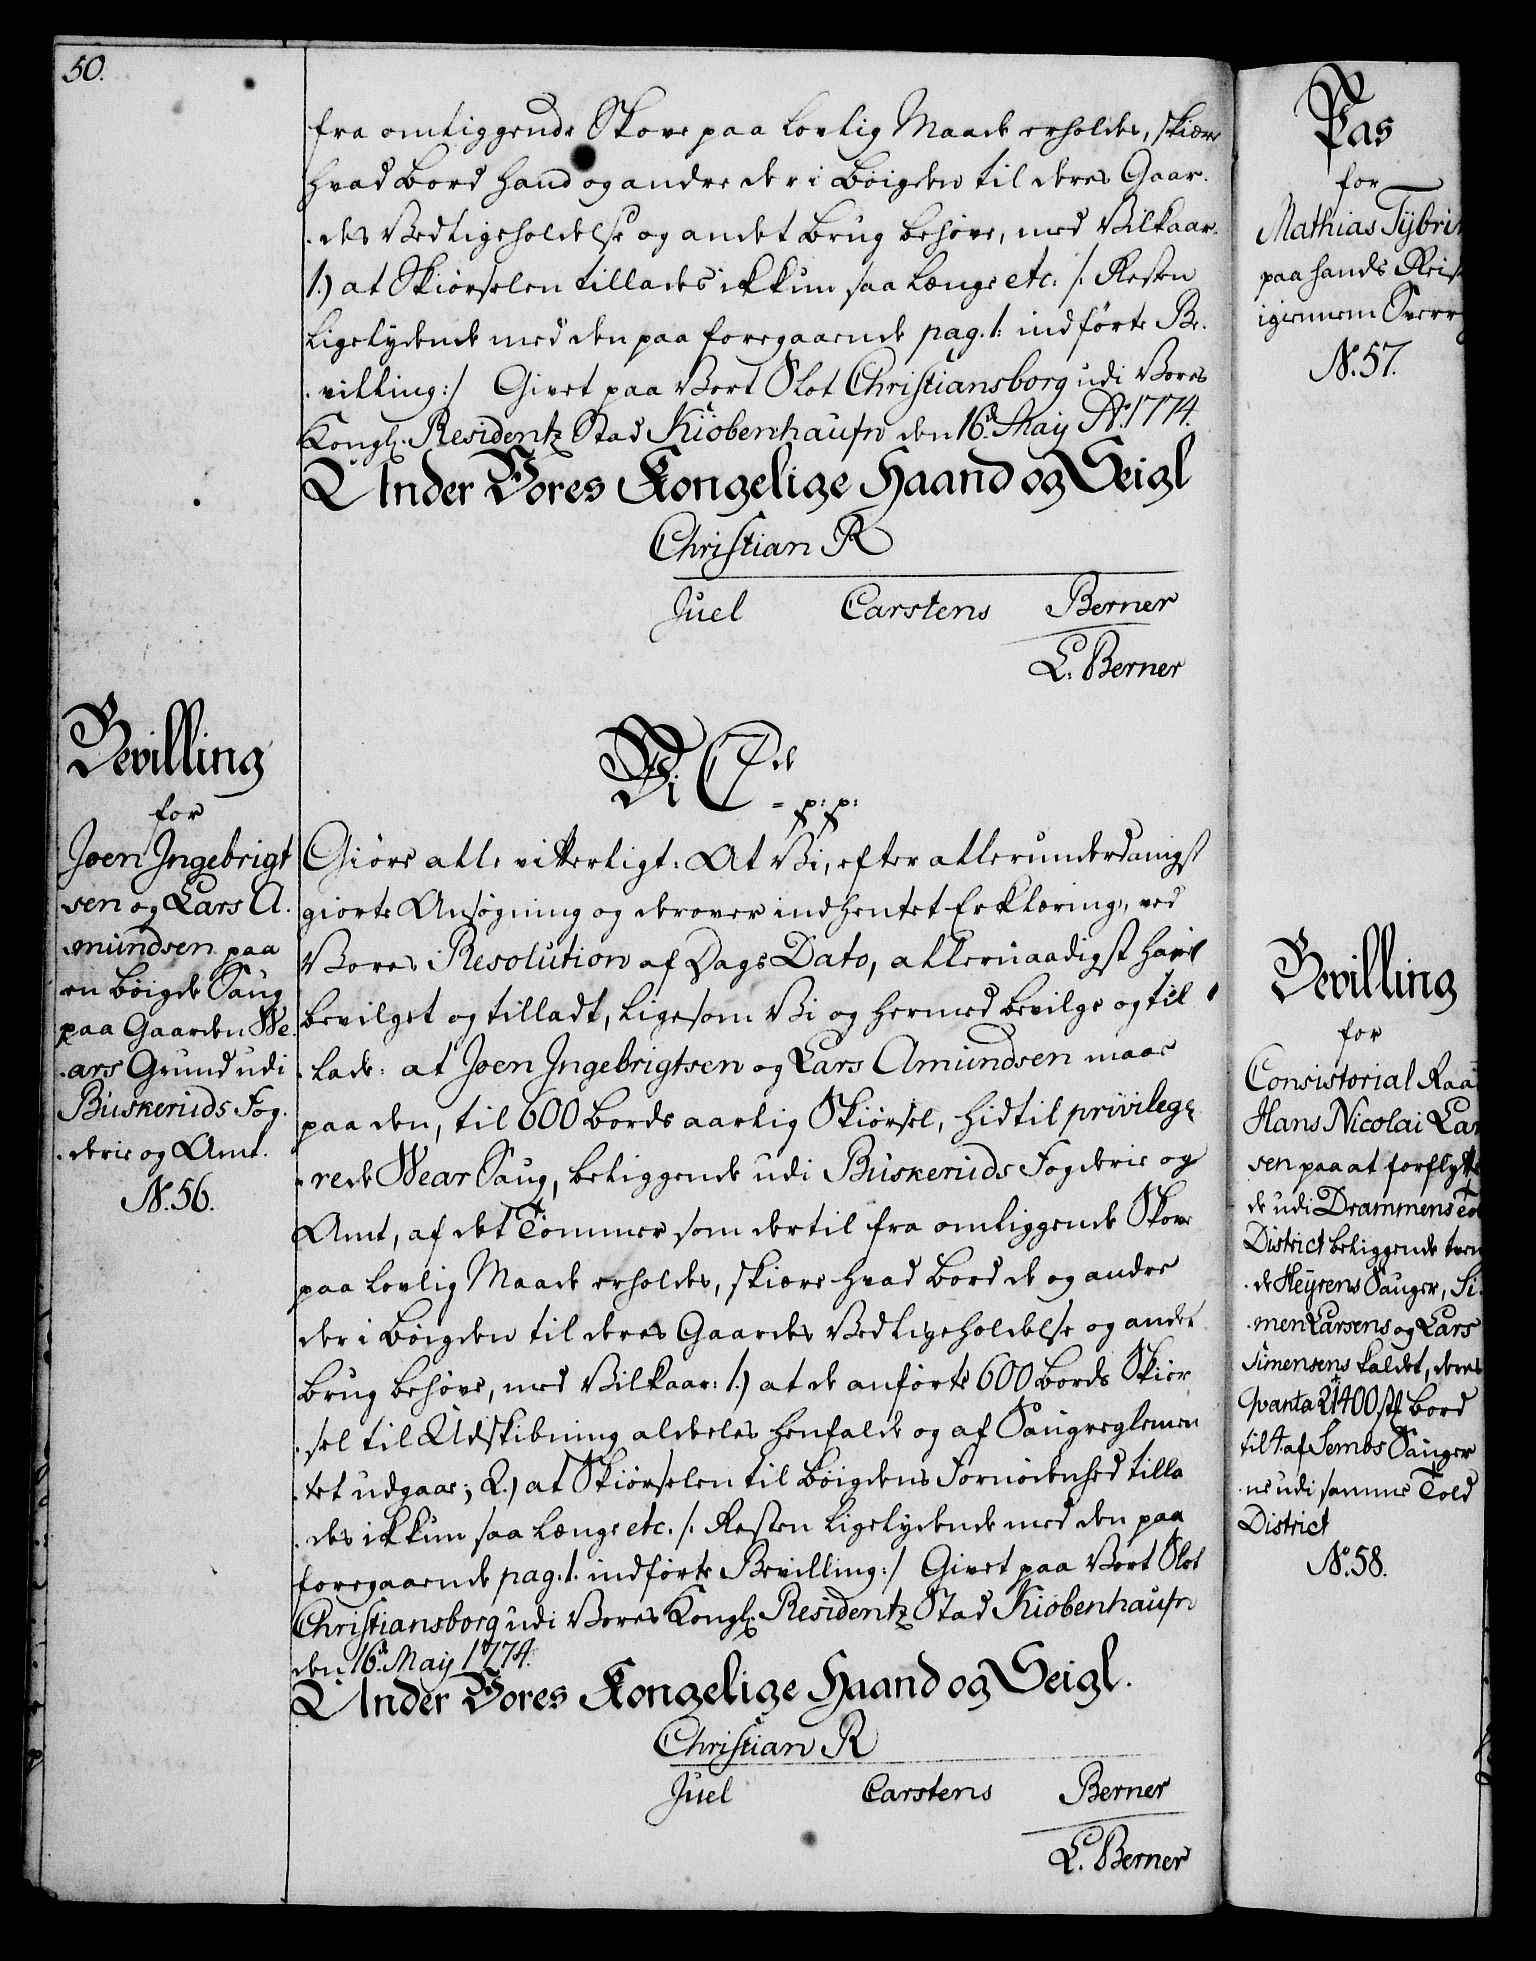 50.
fra omliggende Skove paa lovlig Maade erholdes, skiære
hvad Bord hand og andre der i Bøigden til deres Gaar-
-des Vedligeholdelse og andet Brug behøve, med Vilkaar:
1.) at Skiørselen tillades ikkun saa længe etc. /: Resten
ligelydende med den paa foregaaende pag. 1. indførte Be-
-villing :/ Givet paa Vort Slot Christiansborg udi Vores
Kongl. Residentz Stad Kiøbenhaufn den 16d. Maij Ao. 1774.
Under Vores Kongelige Haand og Seigl
Christian R
Juel Carstens Berner
L. Berner
Bevilling
for
Joen Ingebrigt
sen og Lars A-
-mundsen paa
en Bøigde Saug
paa Gaarden We-
-ars Grund udi
Buskeruds Fog-
-derie og Amt.
No. 56.
Vi C 7de
- p: p:
Giøre alle vitterligt: At Vi, efter allerunderdanigst
giorte Ansøgning og derover indhentet Erklæring, ved
Vores Resolution af Dags Dato, allernaadigst have
bevilget og tilladt, ligesom Vi og hermed bevilge og til
-lade: at Joen Ingebrigtsen og Lars Amundsen maae
paa den, til 600 Bords aarlig Skiørsel, hidtil privilege-
-rede Wear Saug, beliggende udi Buskeruds Fogderie og
Amt, af det Tømmer som dertil fra omliggende Skove
paa lovlig Maade erholdes, skiære hvad Bord de og andre
der i Bøigden til deres Gaardes Vedligeholdelse og andet
Brug behøve, med Vilkaar: 1.) at de anførte 600 Bords Skiør
-sel til Udskibning aldeeles henfalde og af Saugreglemen
-tet udgaae; 2.) at Skiørselen til Bøigdens Fornødenhed tilla
-des ikkun saa længe etc. /: Resten ligelydende med den paa
foregaaende pag. 1. indførte Bevilling :/ Givet paa Vort Slot
Christiansborg udi Vores Kongl. Residentz Stad Kiøbenhaufn
den 16d. Maij 1774.
Under Vores Kongelige Haand og Seigl.
Christian R
Juel Carstens Berner
L. Berner
Pas
for
Mathias Tybri
paa hands Reise
igiennem Sverr
No. 57.
Bevilling
for
Consistorial Raa
Hans Nicolai Lar
sen paa at forflytte
de udi Drammens To
District beliggende tven
-de Heyrens Sauger, Si-
-men Larsens og Lars
Simensens kaldet, deres
Qvanta 21400 st. Bord
til 4 af Sembs Sauger
-ne udi samme Told
District
No. 58.